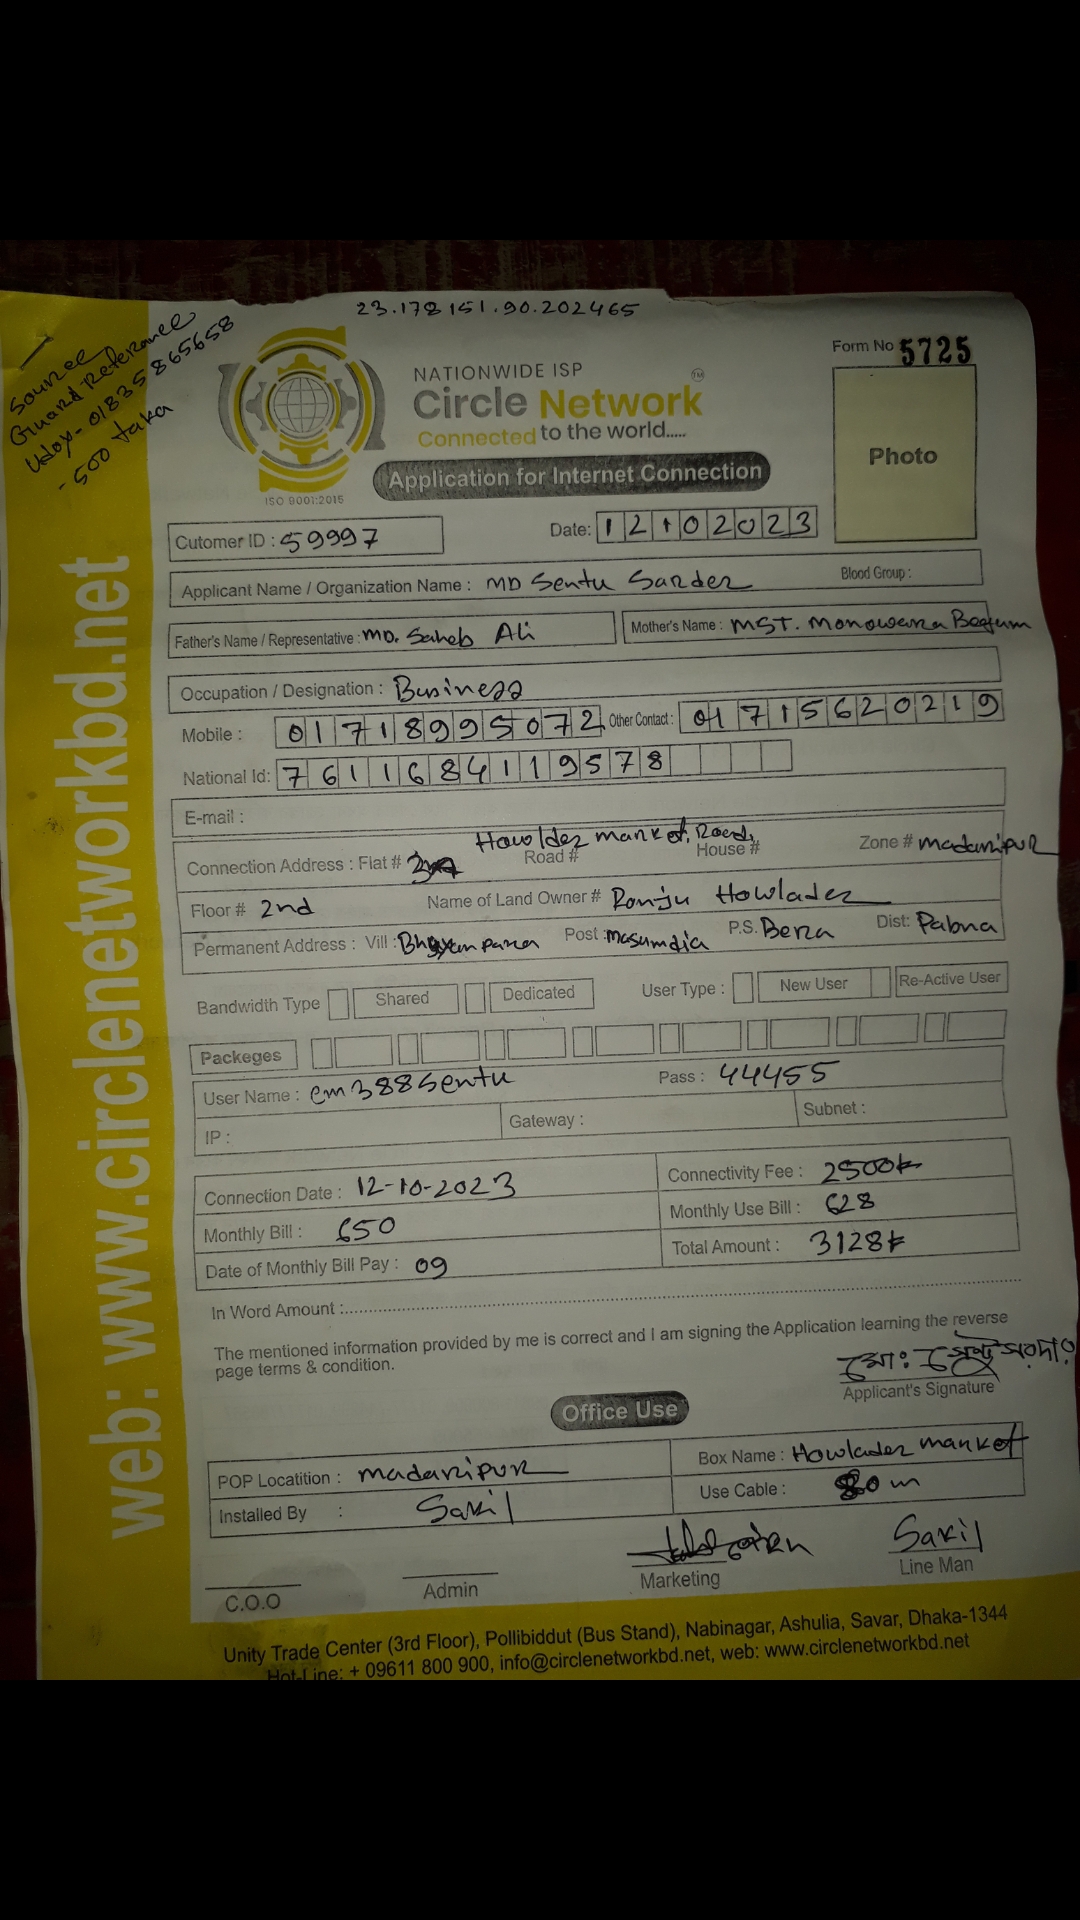 23.178151.90.202465
Source
Guard-Referance
Udoy- 01835865658
- 500 taka
Form No 5725
NATIONWIDE ISP
Circle Network TM
Connected to the world.....
ISO 9001:2015
Application for Internet Connection
Photo
Cutomer ID : 59997
Date: 12102023
Applicant Name / Organization Name : MD Sentu Sarder Blood Group :
Father's Name / Representative : MD. Saheb Ali Mother's Name : MST. Monowara Begum
Occupation / Designation : Business
Mobile : 01718995072 Other Contact : 01715620219
National Id: 7611684119578
E-mail :
Howlder market, Road,
Connection Address : Flat # Road # House # Zone # madaripur
Floor # 2nd Name of Land Owner # Ronju Howlader
Permanent Address : Vill : Post : masumdia P.S. Bera Dist: Pabna
Bandwidth Type Shared Dedicated User Type : New User Re-Active User
Packeges
User Name : cm388sentu Pass : 44455
IP : Gateway : Subnet :
Connection Date : 12-10-2023 Connectivity Fee : 2500tk
Monthly Bill : 650 Monthly Use Bill : 628
Date of Monthly Bill Pay : 09 Total Amount : 3128tk
In Word Amount :..........
The mentioned information provided by me is correct and I am signing the Application learning the reverse
page terms & condition.
মোঃ সেন্টু সরদার
Applicant's Signature
Office Use
POP Locatition : madaripur Box Name : Howlader market
Installed By : Sakil Use Cable : 80 m
Sakil
C.O.O Admin Marketing Line Man
Unity Trade Center (3rd Floor), Pollibiddut (Bus Stand), Nabinagar, Ashulia, Savar, Dhaka-1344
Hot-Line: + 09611 800 900, info@circlenetworkbd.net, web: www.circlenetworkbd.net
web: www.circlenetworkbd.net